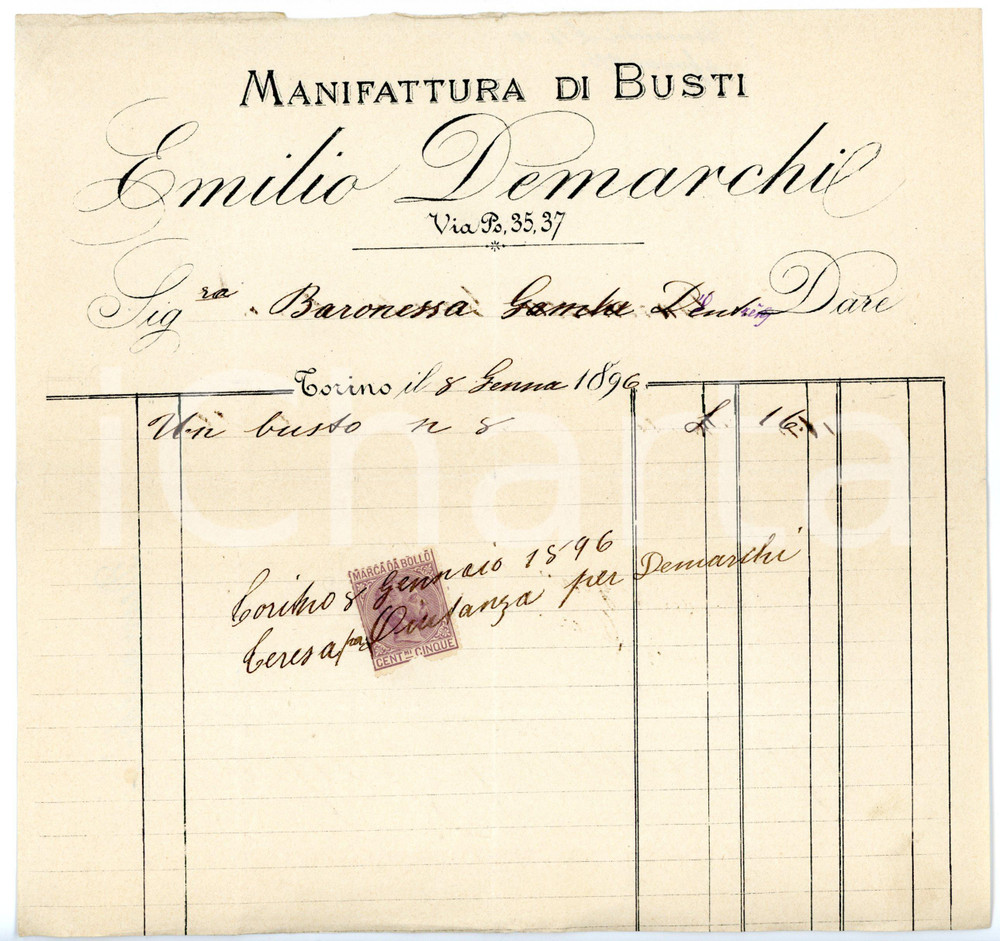 MANIFATTURA DI BUSTI
Emilio Demarchi
Via Po, 35, 37
Sig ra Baronessa Gamba Dare
Torino il 8 Genna 1896
Un busto n 8 L. 16
Torino 8 Gennaio 1896
Teresa per Quitanza per Demarchi
MARCA DA BOLLO
CENT.MI CINQUE
iCharta